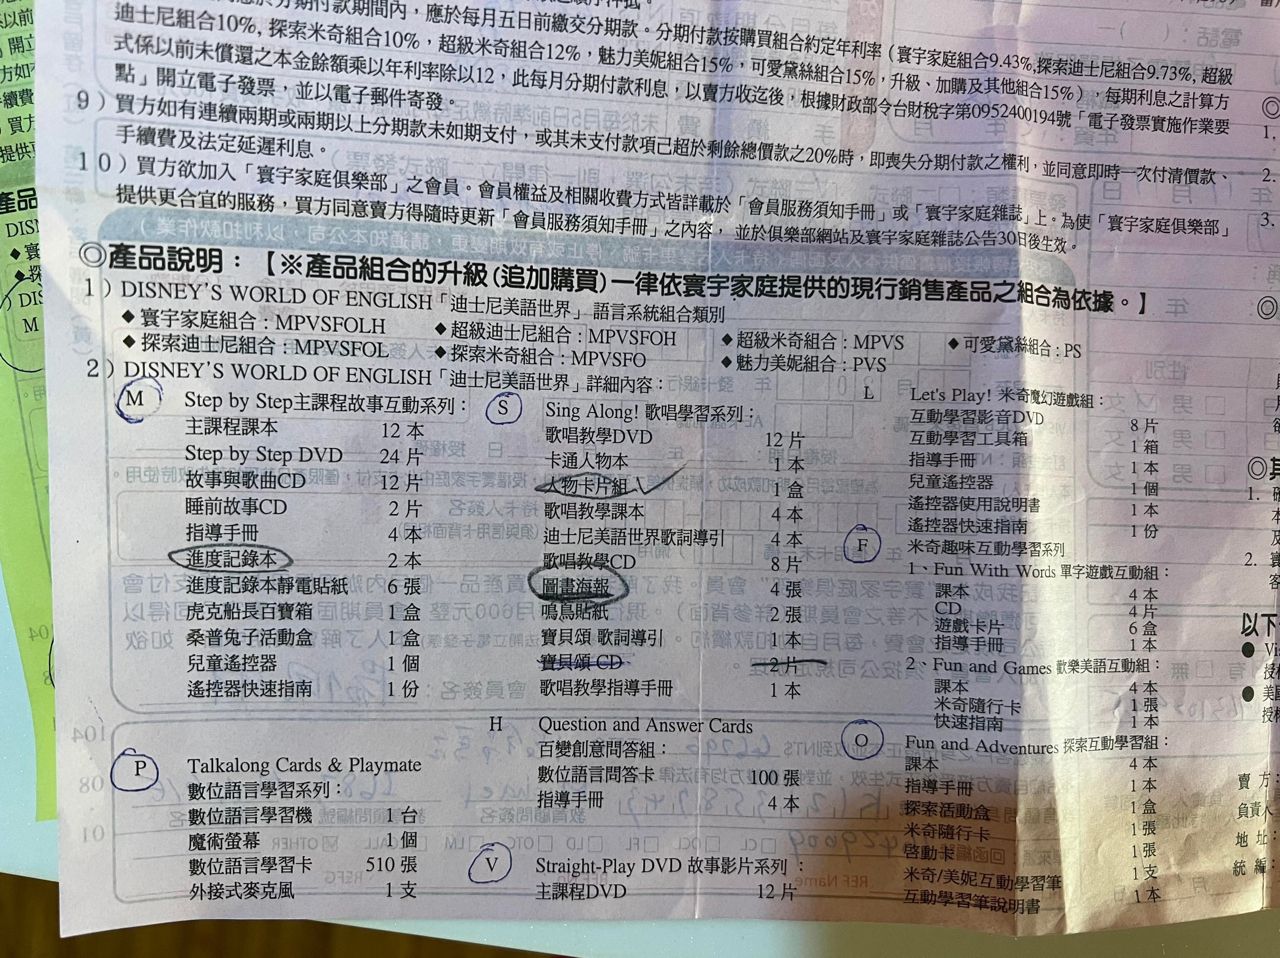 應於每月五日前繳交分期款。分期付款按購買組合約定年利率（寰宇家庭組合9.43%,探索迪士尼組合9.73%, 超級
迪士尼組合10%, 探索米奇組合10%，超級米奇組合12%，魅力美妮組合15%，可愛黛絲組合15%，升級、加購及其他組合15%），每期利息之計算方
式係以前未償還之本金餘額乘以年利率除以12，此每月分期付款利息，以賣方收迄後，根據財政部令台財稅字第0952400194號「電子發票實施作業要
點」開立電子發票，並以電子郵件寄發。
9）買方如有連續兩期或兩期以上分期款未如期支付，或其未支付款項已超於剩餘總價款之20%時，即喪失分期付款之權利，並同意即時一次付清價款、
手續費及法定延遲利息。
10）買方欲加入「寰宇家庭俱樂部」之會員。會員權益及相關收費方式皆詳載於「會員服務須知手冊」或「寰宇家庭雜誌」上。為使「寰宇家庭俱樂部」
提供更合宜的服務，買方同意賣方得隨時更新「會員服務須知手冊」之內容，並於俱樂部網站及寰宇家庭雜誌公告30日後生效。
◎產品說明：【※產品組合的升級(追加購買)一律依寰宇家庭提供的現行銷售產品之組合為依據。】
1）DISNEY'S WORLD OF ENGLISH「迪士尼美語世界」語言系統組合類別
◆寰宇家庭組合：MPVSFOLH ◆超級迪士尼組合：MPVSFOH ◆超級米奇組合：MPVS ◆可愛黛絲組合：PS
◆探索迪士尼組合：MPVSFOL ◆探索米奇組合：MPVSFO ◆魅力美妮組合：PVS
2）DISNEY'S WORLD OF ENGLISH「迪士尼美語世界」詳細內容：
M Step by Step主課程故事互動系列：
主課程課本 12 本
Step by Step DVD 24 片
故事與歌曲CD 12 片
睡前故事CD 2 片
指導手冊 4 本
進度記錄本 2 本
進度記錄本靜電貼紙 6 張
虎克船長百寶箱 1 盒
桑普兔子活動盒 1 盒
兒童遙控器 1 個
遙控器快速指南 1 份
P Talkalong Cards & Playmate
數位語言學習系列：
數位語言學習機 1 台
魔術螢幕 1 個
數位語言學習卡 510 張
外接式麥克風 1 支
S Sing Along! 歌唱學習系列：
歌唱教學DVD 12 片
卡通人物本 1 本
人物卡片組 1 盒
歌唱教學課本 4 本
迪士尼美語世界歌詞導引 4 本
歌唱教學CD 8 片
圖畫海報 4 張
鳴鳥貼紙 2 張
寶貝頌 歌詞導引 1 本
寶貝頌 CD 2 片
歌唱教學指導手冊 1 本
H Question and Answer Cards
百變創意問答組：
數位語言問答卡 100 張
指導手冊 4 本
V Straight-Play DVD 故事影片系列：
主課程DVD 12 片
L Let's Play! 米奇魔幻遊戲組：
互動學習影音DVD 8 片
互動學習工具箱 1 箱
指導手冊 1 本
兒童遙控器 1 個
遙控器使用說明書 1 本
遙控器快速指南 1 份
F 米奇趣味互動學習系列
1、Fun With Words 單字遊戲互動組：
課本 4 本
CD 4 片
遊戲卡片 6 盒
指導手冊 1 本
2、Fun and Games 歡樂美語互動組：
課本 4 本
米奇隨行卡 1 張
快速指南 1 本
O Fun and Adventures 探索互動學習組：
課本 4 本
指導手冊 1 本
探索活動盒 1 盒
米奇隨行卡 1 張
啓動卡 1 張
米奇/美妮互動學習筆 1 支
互動學習筆說明書 1 本
以下
賣 方：
負責人
地 址：
統 編：